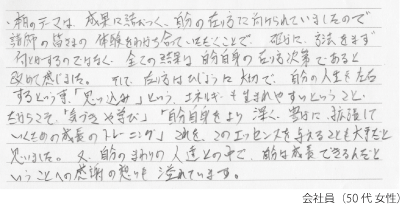 ・朝のテーマは、成果に結びつく、自分の在り方に向けられていましたので
講師の皆さまの体験をわけ合っていただくことで、更に、方法をまず
知とするのではなく、全ての結果は自分自身の在り方次第であると
改めて感じました。そして在り方はひじょうに大切で、自分の人生を左右
するという事、「思い込み」という、エネルギーも生まれやすいということ、
だからこそ「気づきや学び」「自分自身をより深く、豊かに拡張して
いくための成長のトレーニング」これを、このエッセンスを与えることも大事だと
思いました。又、自分のまわりの人達との中で、自分は成長できるんだと
いうことへの感謝の想いも溢れています。
会社員（50代 女性）